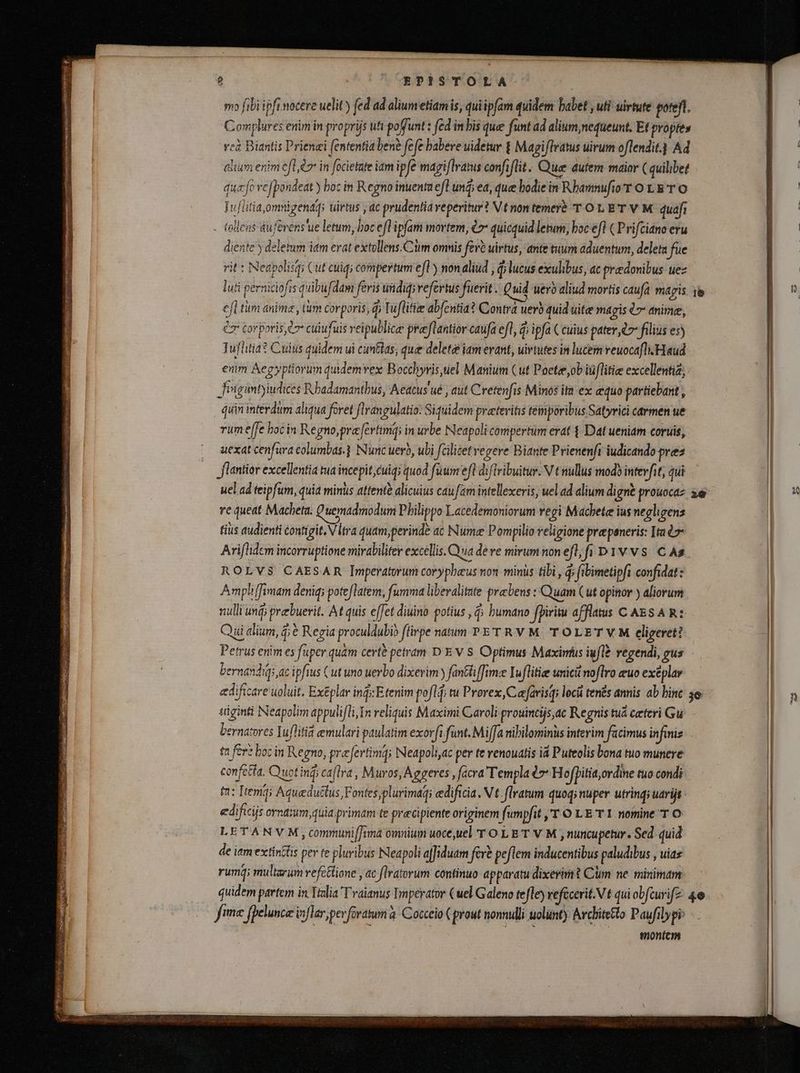 EPISTOLA
mo sibi ipsi nocere uelit) sed ad alium etiam is, qui ipsam quidem habet, uti uirtute potest.
Complures enim in proprijs uti possunt: sed in his quæ sunt ad alium, nequeunt. Et propter
reà Biantis Prienæi sententia benè sese habere uidetur Magistratus uirum ostendit. Ad
alium enim est, & in societate iam ipse magistratus consistit. Quæ autem maior (quilibet
quæso respondeat) hoc in Regno inuenta est unq; ea, quæ hodie in Rhamnusio TOLETO
Iustitia, omnigenaq; uirtus, ac prudentia reperitur? Vt non temerè TOLETVM quasi
tollens auferens'ue letum, hoc est ipsam mortem, & quicquid letum, hoc est (Prisciano eru
diente) deletum iam erat extollens. Cùm omnis ferè uirtus, ante tuum aduentum, deleta fue
rit: Neapolisq; (ut cuiq; compertum est) non aliud, q̃ lucus exulibus, ac prædonibus uez
luti perniciosis quibusdam feris undiq; refertus fuerit. Quid uerò aliud mortis causa magis 10
est tùm animæ, tùm corporis, q̃ Iustitiæ absentia? Contrà uerò quid uitæ magis & animæ,
& corporis, & cuiusuis reipublicæ præstantior causa est, q̃ ipsa (cuius pater, & filius es)
Iustitia? Cuius quidem ui cunctas, quæ deletæ iam erant, uirtutes in lucem reuocasti. Haud
enim Aegyptiorum quidem rex Bocchyris, uel Manium (ut Poetæ, ob iustitiæ excellentiã,
fingunt) iudices Rhadamanthus, Aeacus'ue, aut Cretensis Minos ita ex æquo partiebant,
quin interdùm aliqua foret strangulatio. Siquidem præteritis temporibus Satyrici carmen ue
rum esse hoc in Regno, præsertimq; in urbe Neapoli compertum erat Dat ueniam coruis,
uexat censura columbas. Nunc uerò, ubi scilicet regere Biante Prienensi iudicando præs
stantior excellentia tua incepit, cuiq; quod suum est distribuitur. Vt nullus modò intersit, qui
uel ad teipsum, quia minùs attentè alicuius causam intellexeris, uel ad alium dignè prouocaz 20
re queat Macheta. Quemadmodum Philippo Lacedemoniorum regi Machetæ ius negligens
tiùs audienti contigit. Vltra quam, perindè ac Numæ Pompilio religione præponeris: Ita &
Aristidem incorruptione mirabiliter excellis. Qua de re mirum non est, si DIVVS CAs
ROLVS CAESAR Imperatorum coryphæus non minùs tibi, q̃ sibimetipsi confidat:
Amplissimam deniq; potestatem, summa liberalitate præbens: Quam (ut opinor) aliorum
nulli unq; præbuerit. At quis esset diuino potius, q̃ humano spiritu afflatus CAESAR:
Qui alium, q̃ è Regia proculdubiò stirpe natum PETRVM TOLETVM eligeret?
Petrus enim es super quàm certè petram DEVS Optimus Maximus iustè regendi, gus
bernandiq;, ac ipsius (ut uno uerbo dixerim) sanctissimæ Iustitiæ unicũ nostro æuo exẽplar
ædificare uoluit. Exẽplar inq̃: Etenim postq̃ tu Prorex, Cæsarisq; locũ tenẽs annis ab hinc 30
uiginti Neapolim appulisti, In reliquis Maximi Caroli prouincijs, ac Regnis tuã cæteri Gu
bernatores Iustitiã æmulari paulatim exorsi sunt. Missa nihilominùs interim facimus infiniz
ta ferè hoc in Regno, præsertimq; Neapoli, ac per te renouatis iã Puteolis bona tuo munere
confecta. Quot inq̃ castra, Muros, Aggeres, sacra Templa & Hospitia, ordine tuo condi
ta: Itemq; Aquæductus, Fontes, plurimaq; ædificia. Vt stratum quoq; nuper utrinq; uarijs
ædificijs ornatum, quia primam te præcipiente originem sumpsit, TOLETI nomine TO
LETANVM, communissima omnium uoce, uel TOLETVM, nuncupetur. Sed quid
de iam extinctis per te pluribus Neapoli assiduam ferè pestem inducentibus paludibus, uiaz
rumq; multarum refectione, ac stratorum continuo apparatu dixerim? Cùm ne minimam
quidem partem in Italia Traianus Imperator (uel Galeno teste) refecerit. Vt qui obscurisz 40
simæ speluncæ instar, perforatum à Cocceio (prout nonnulli uolunt) Architecto Pausilypi
montem